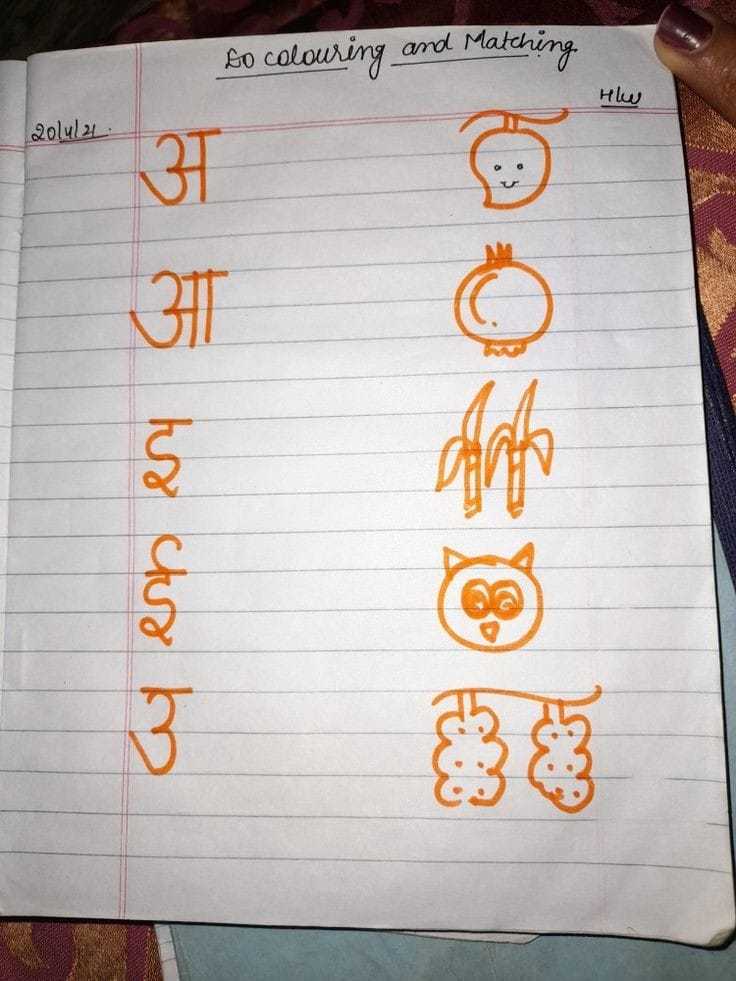 Do colouring and Matching
H/W
20/4/21.
अ
आ
इ
ई
उ